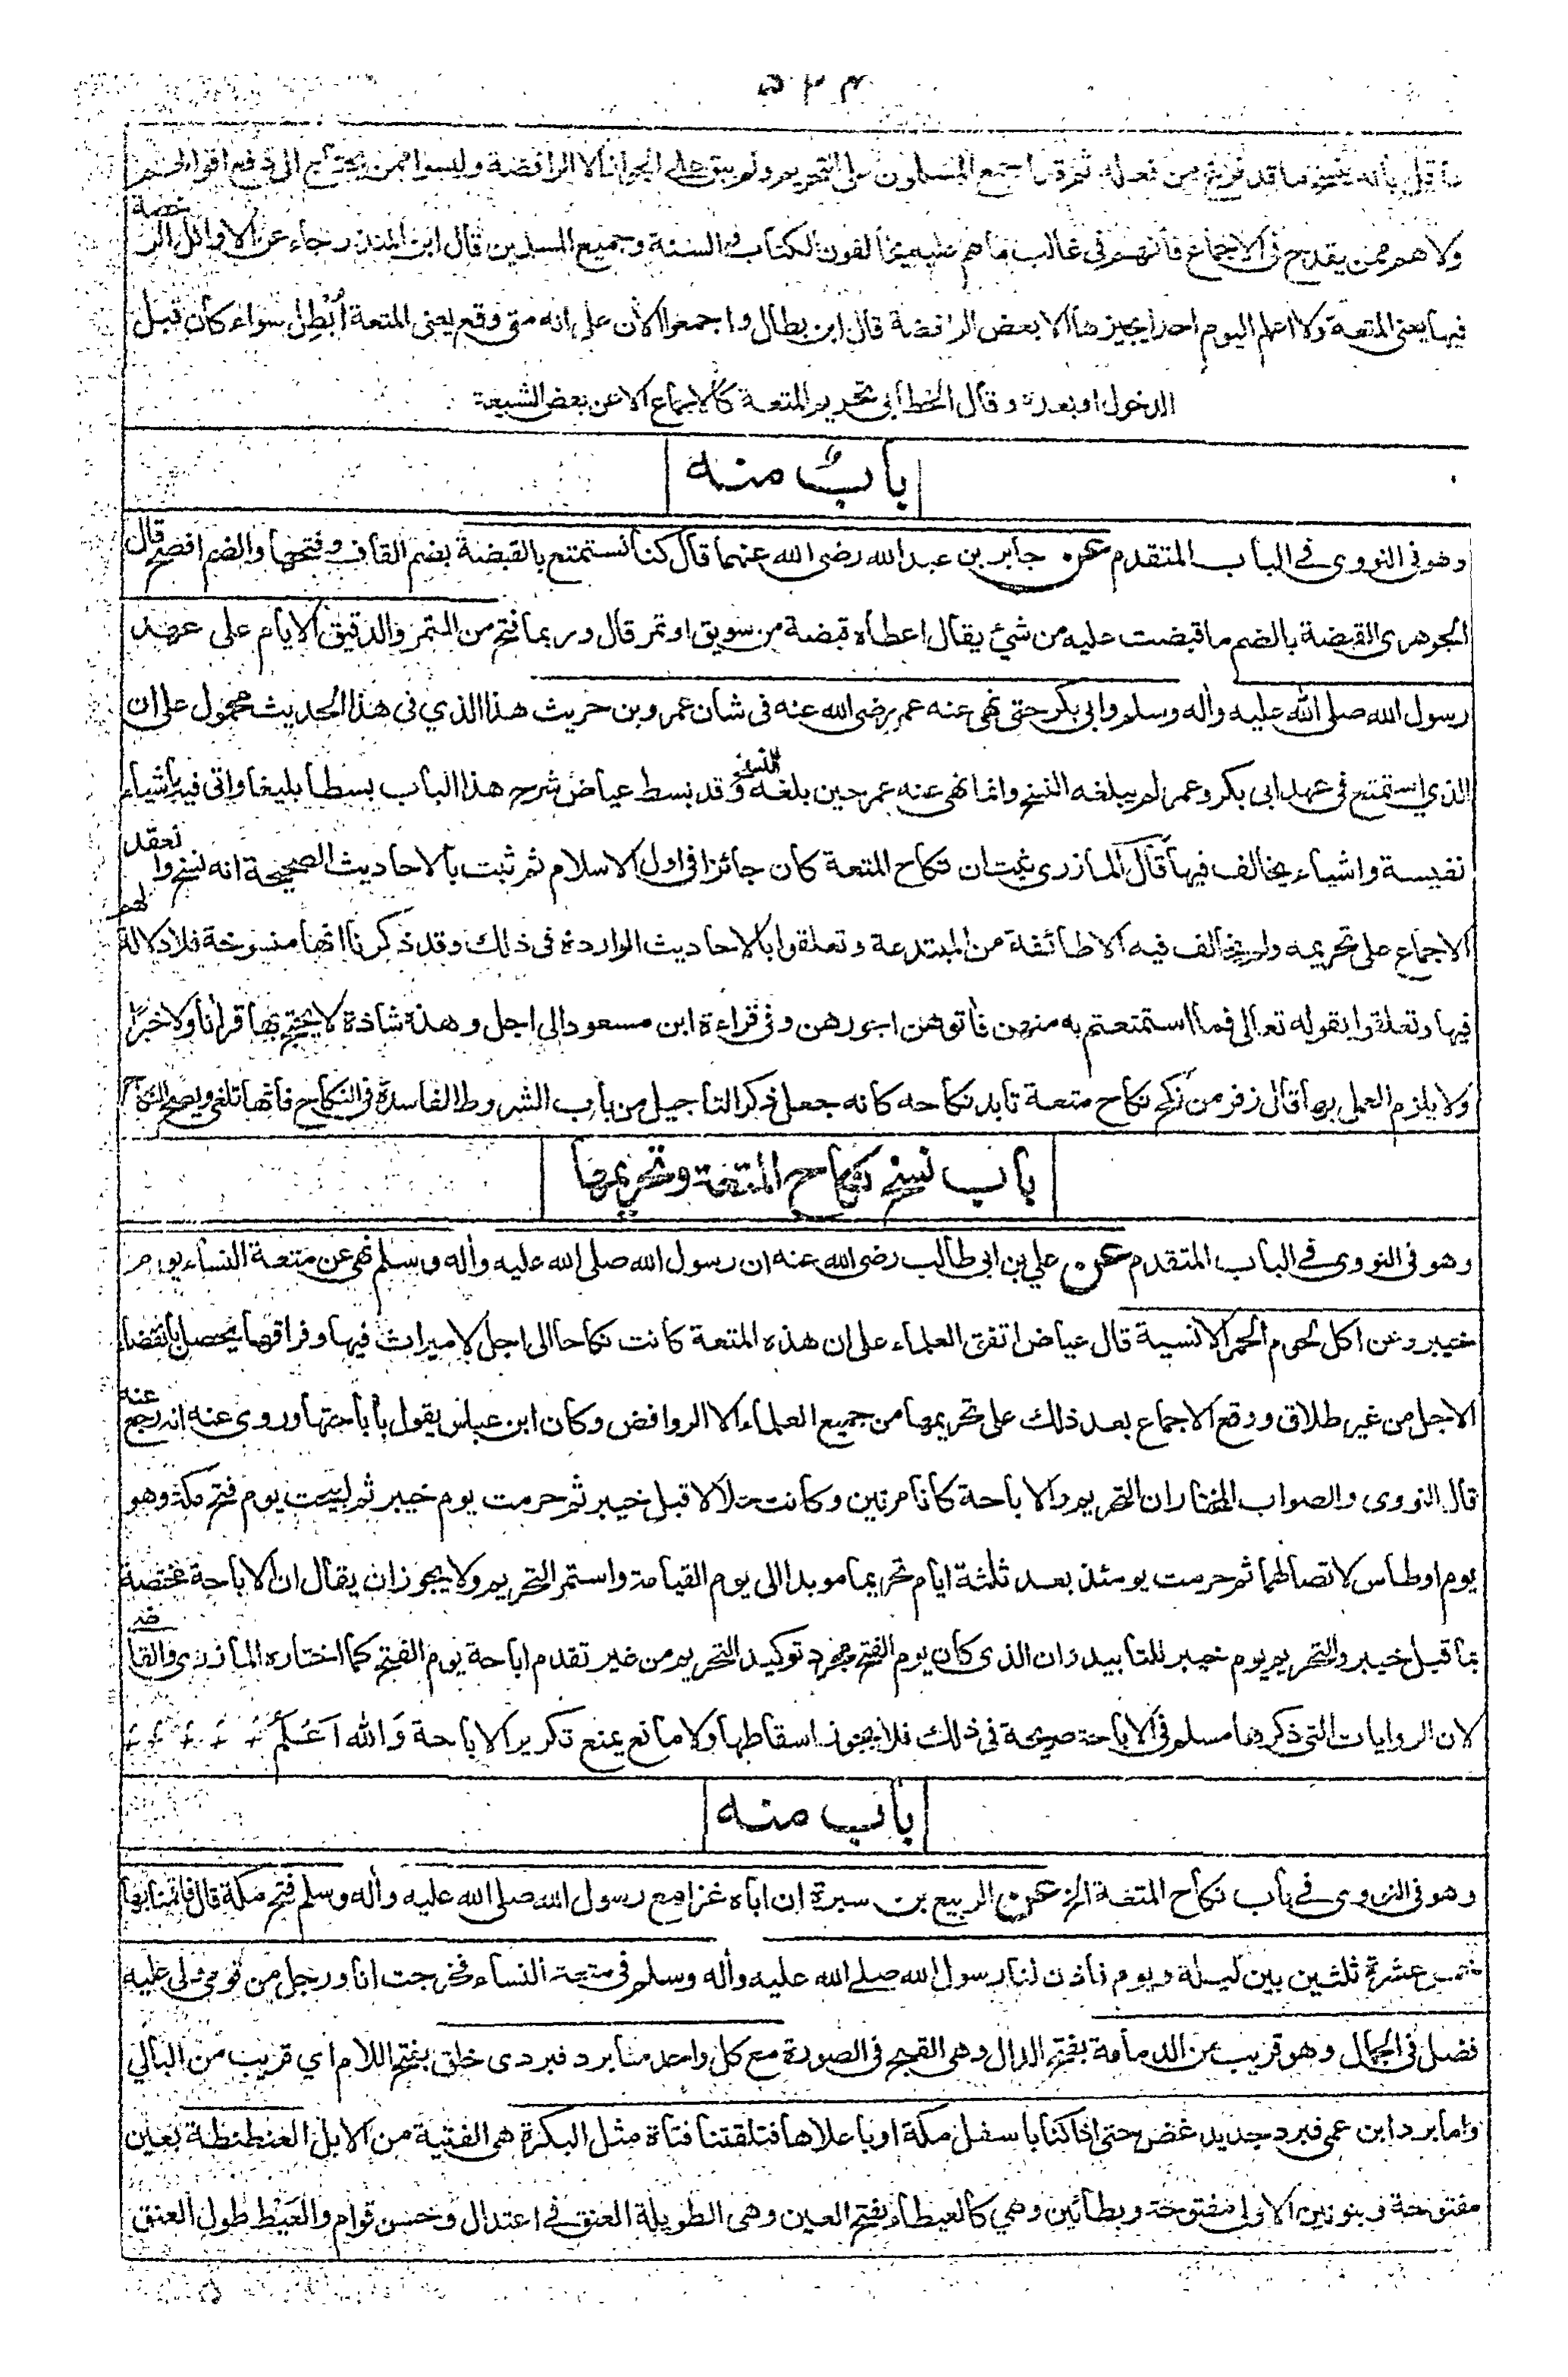 ۵۲۴
ما قيل بانه ينسخ ما قد فرغتم من فعله ثم قد اجمع المسلمون على التحريم ولم يبق على الجواز الا الرافضة وليسوا ممن يحتاج الى دفع اقوالهم
ولا هم ممن يقدح فى الاجماع فانهم فى غالب ما هم عليه مخالفون الكتاب والسنة وجميع المسلمين قال ابن المنذر جاء عن الاوائل الرخصة
فيها يعنى المتعة ولا اعلم اليوم احدا يجيزها الا بعض الرافضة قال ابن بطال واجمعوا الان على انه متى وقع يعنى المتعة اُبْطِل سواء كان قبل
الدخول او بعده وقال الخطابى تحريم المتعة كالاجماع الا عن بعض الشيعة
بابٌ منه
وهو فى النووى فى الباب المتقدم عن جابر بن عبد الله رضى الله عنهما قال كنا نستمتع بالقبضة بضم القاف وفتحها والضم افصح قال
الجوهرى القبضة بالضم ما قبضت عليه من شئ يقال اعطاه قبضة من سويق او تمر قال وربما فتح من التمر والدقيق الايام على عهد
رسول الله صلى الله عليه واله وسلم وابى بكر حتى نهى عنه عمر رضى الله عنه فى شان عمرو بن حريث هذا الذي فى هذا الحديث محمول على ان
الذي استمتع فى عهد ابى بكر وعمر لم يبلغه النسخ وانما نهى عنه عمر حين بلغه النسخ وقد بسط عياض شرح هذا الباب بسطا بليغا واتى فيه باشياء
نفيسة واشياء يخالف فيها قال المازرى ثبت ان نكاح المتعة كان جائزا فى اول الاسلام ثم ثبت بالاحاديث الصحيحة انه نسخ وانعقد
الاجماع على تحريمه ولم يخالف فيه الا طائفة من المبتدعة وتعلقوا بالاحاديث الواردة فى ذلك وقد ذكرنا انها منسوخة فلا دلالة لهم
فيها وتعلقوا بقوله تعالى فما استمتعتم به منهن فاتوهن اجورهن وفى قراءة ابن مسعود الى اجل وهذه شاذة لا يحتج بها قرانا ولا خبرًا
ولا يلزم العمل بها قال زفر من نكح نكاح متعة تابد نكاحه كانه جعل ذكر التاجيل من باب الشروط الفاسدة فى النكاح فانها تلغى ويصح النكاح
باب نسخ نكاح المتعة وتحريمها
وهو فى النووى فى الباب المتقدم عن علي بن ابى طالب رضى الله عنه ان رسول الله صلى الله عليه واله وسلم نهى عن متعة النساء يوم
خيبر وعن اكل لحوم الحمر الانسية قال عياض اتفق العلماء على ان هذه المتعة كانت نكاحا الى اجل لا ميراث فيها وفراقها يحصل بانقضاء
الاجل من غير طلاق ووقع الاجماع بعد ذلك على تحريمها من جميع العلماء الا الروافض وكان ابن عباس يقول باباحتها وروى عنه انه رجع عنه
قال النووى والصواب المختار ان التحريم والاباحة كانا مرتين وكانت حلالا قبل خيبر ثم حرمت يوم خيبر ثم ابيحت يوم فتح مكة وهو
يوم اوطاس لاتصالهما ثم حرمت يومئذ بعد ثلثة ايام تحريما موبدا الى يوم القيامة واستمر التحريم ولا يجوز ان يقال ان الاباحة مختصة
بما قبل خيبر والتحريم يوم خيبر للتابيد وان الذى كان يوم الفتح مجرد توكيد التحريم من غير تقدم اباحة يوم الفتح كما اختاره المازرى والقاضى
لان الروايات التى ذكرها مسلم فى الاباحة صريحة فى ذلك فلا يجوز اسقاطها ولا مانع يمنع تكرير الاباحة وَالله اَعْلَمُ
باب منه
وهو فى النووى فى باب نكاح المتعة الخ عن الربيع بن سبرة ان اباه غزا مع رسول الله صلى الله عليه واله وسلم فتح مكة قال فاقمنا بها
خمس عشرة ثلثين بين ليلة ويوم فاذن لنا رسول الله صلى الله عليه واله وسلم فى متعة النساء فخرجت انا ورجل من قومى ولى عليه
فضل فى الجمال وهو قريب من الدمامة بفتح الدال وهى القبح فى الصورة مع كل واحد منا برد فبردى خلق بفتح اللام اي قريب من البالي
واما برد ابن عمى فبرد جديد غض حتى اذا كنا باسفل مكة او باعلاها فتلقتنا فتاة مثل البكرة هى الفتية من الابل العنطنطة بعين
مفتوحة وبنونين الاولى مفتوحة وبطائين وهي كالعيطاء بفتح العين وهى الطويلة العنق فى اعتدال وحسن قوام والعَيَط طول العنق